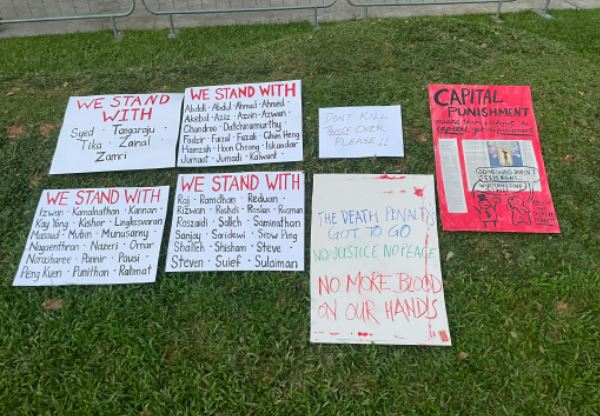 WE STAND
WITH
Syed · Tangaraju ·
Tika · Zainal ·
Zamri
WE STAND WITH
Abdoll · Abdul · Ahmad · Ahmed ·
Akebal · Aziz · Azwin · Azwan ·
Chandroo · Datchinamurthy ·
Fadzir · Faisal · Faizal · Ghim Heng
Hamzah · Hoon Cheong · Iskandar
Jumaat · Jumadi · Kalwant ·
WE STAND WITH
Izwan · Kamalnathan · Kannan ·
Kay Yong · Kishor · Lingkesvaran
Masoud · Mubin · Munusamy ·
Nagaenthran · Nazeri · Omar ·
Norasharee · Pannir · Pausi ·
Peng Kuen · Punithan · Rahmat
WE STAND WITH
Raj · Ramdhan · Reduan ·
Rizwan · Roshdi · Roslan · Rosman
Roszaidi · Salleh · Saminathan
Sanjay · Saridewi · Seow Ping
Shalleh · Shisham · Steve ·
Steven · Suief · Sulaiman
DON'T KILL
TWICE OVER
PLEASE !!
THE DEATH PENALTY
GOT TO GO
NO JUSTICE NO PEACE
NO MORE BLOOD
ON OUR HANDS
CAPITAL
PUNISHMENT
means them without the
CAPITAL get the punishment
SOMETHING DOESN'T
SEEM RIGHT